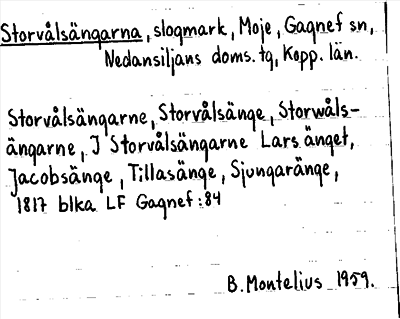 Storvålsängarna, slogmark, Moje, Gagnef sn,
Nedansiljans doms. tg, Kopp. län.
Storvålsängarne, Storvålsänge, Storwåls-
ängarne, I Storvålsängarne Lars änget,
Jacobsänge, Tillasänge, Sjungaränge,
1817 blka LF Gagnef: 84
B. Montelius 1959.